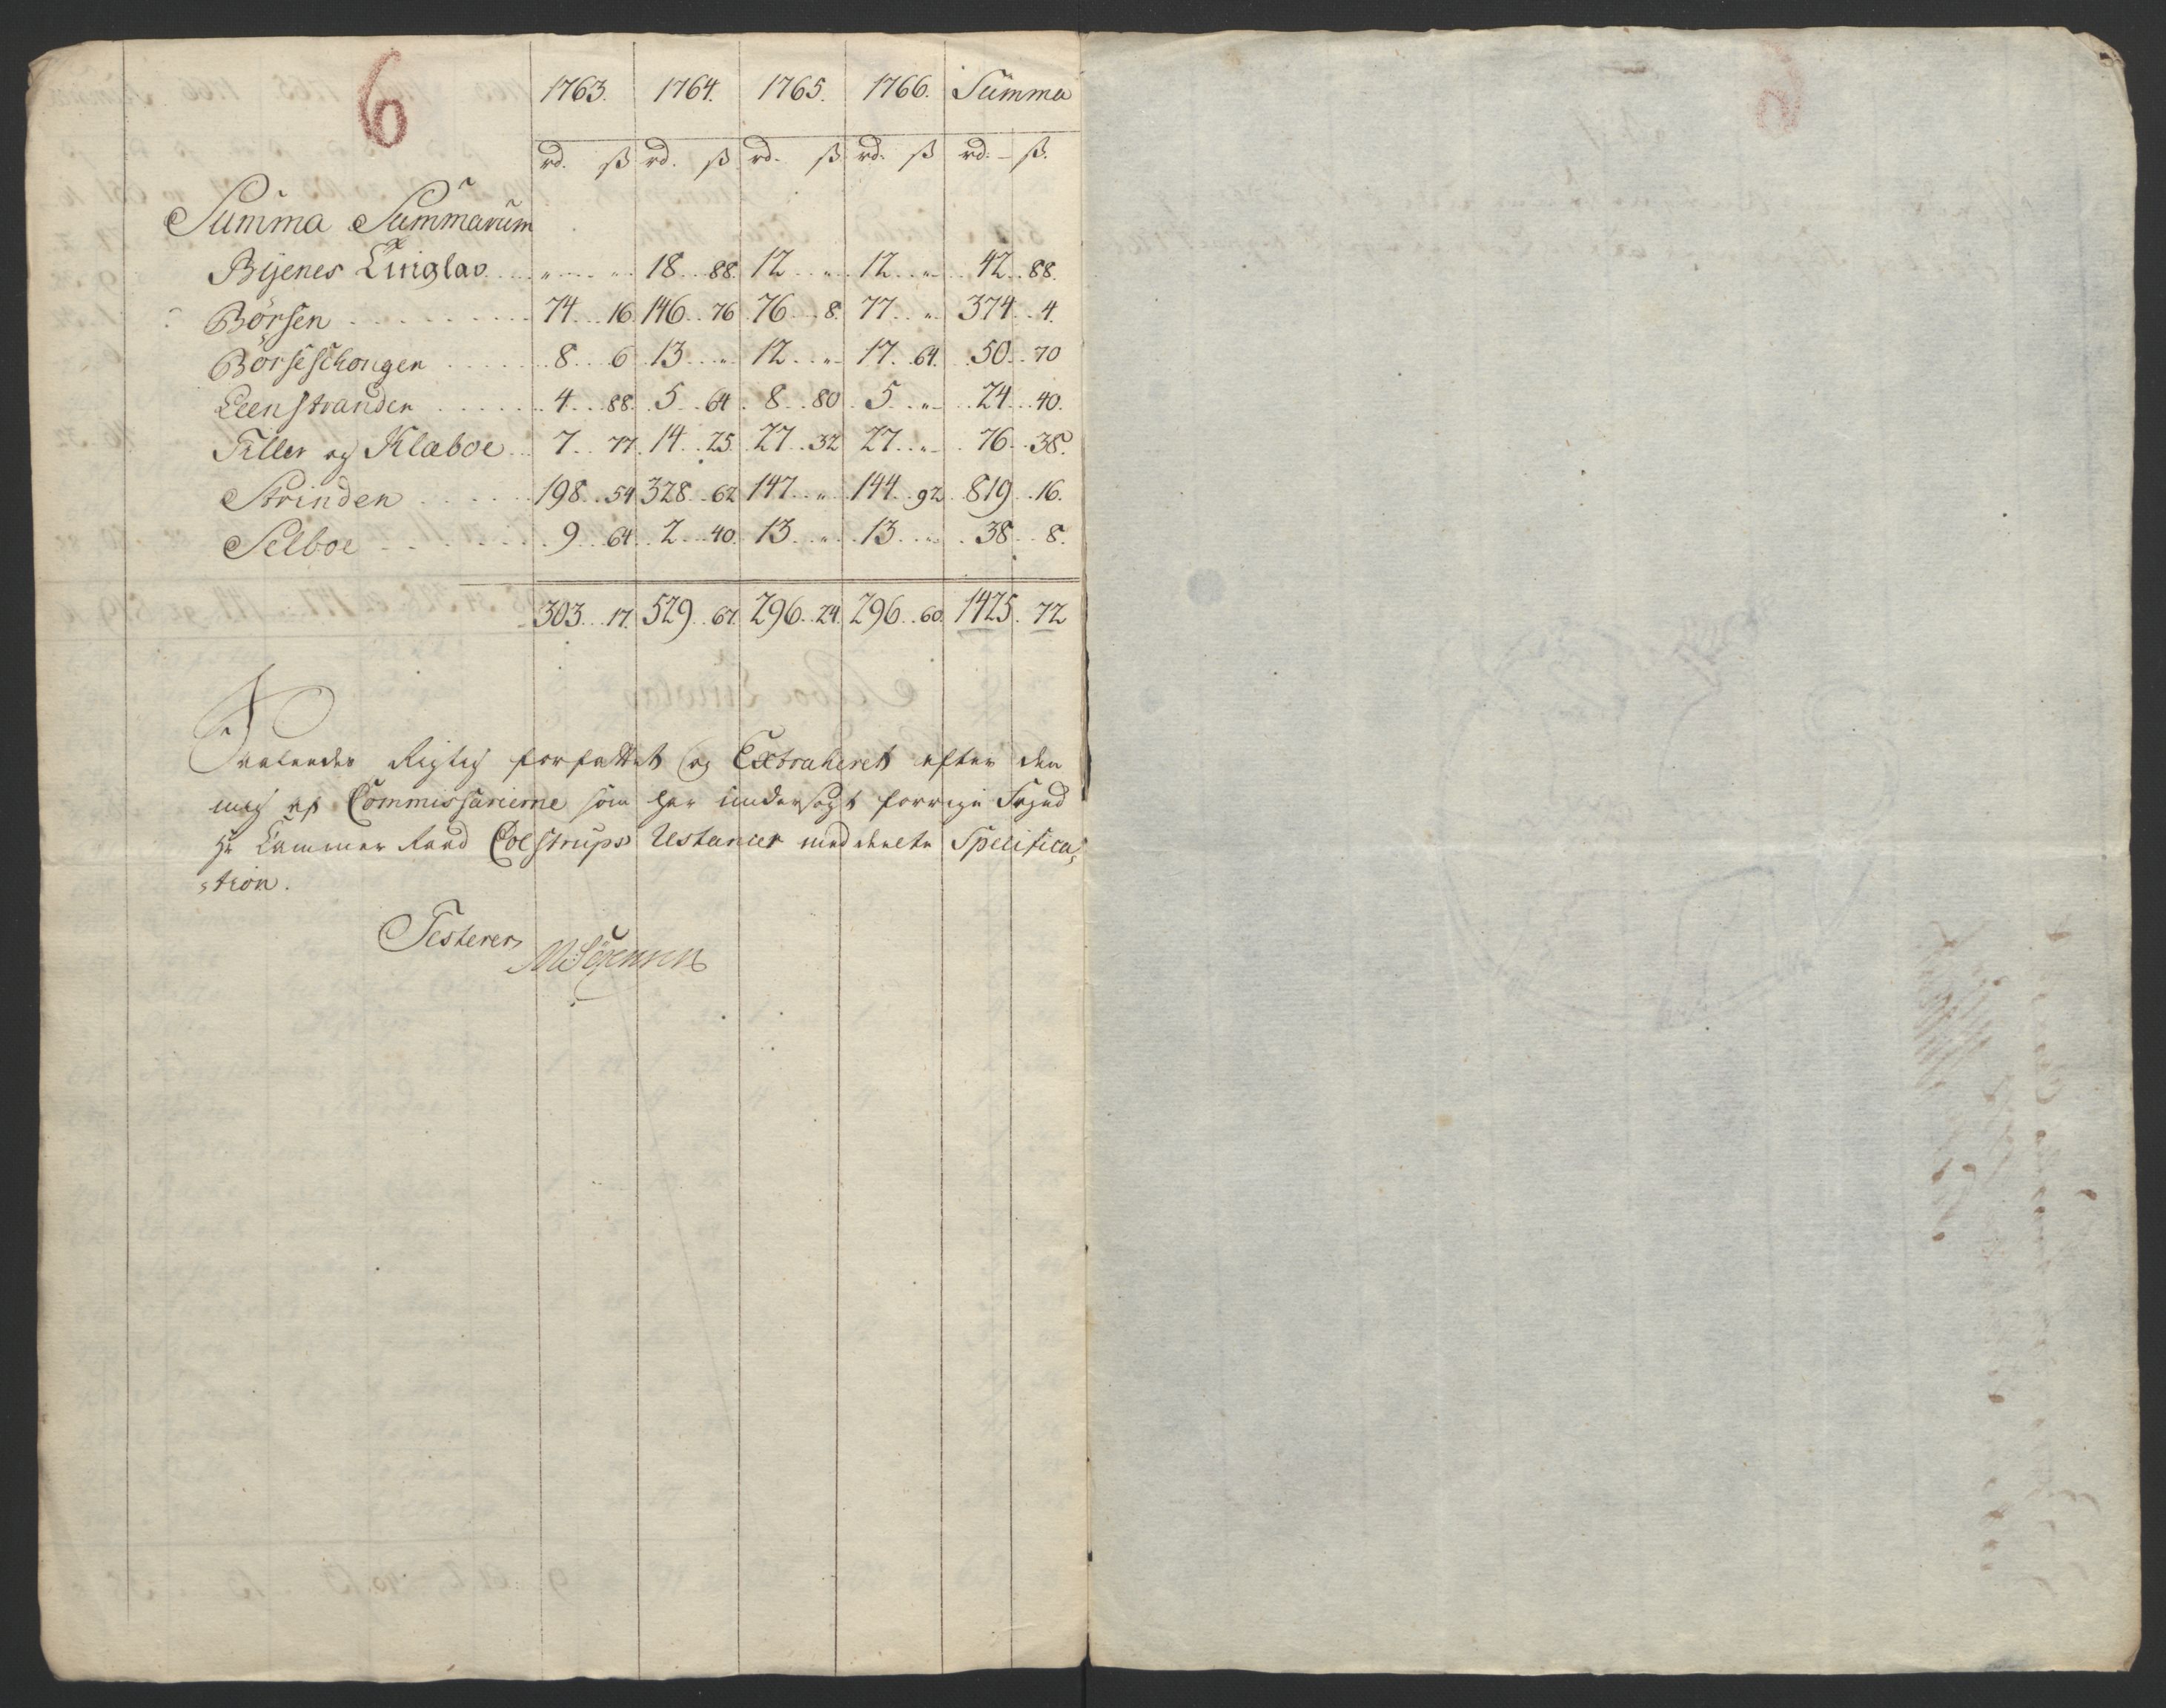 6
1763. 1764. 1765. 1766. Summa
rd. ß rd. ß rd. ß rd. ß rd. ß.
Summa Summarum
Byenes Tinglav " " 18 88. 12 " 12 " 42 88.
Börsen 74 16 146 76 76 8. 77 " 374 4.
Börseschougen 8 6 13 " 12 " 17 64. 50 70
Leenstranden 4 88. 5 64. 8 80 5 " 24 40.
Tiller og Klæboe 7 77. 14 25 27 32 27 " 76 38.
Strinden 198 54 328 62 147 " 144 92 819 16.
Selboe 9 64 2 40. 13 " 13 " 38 8.
303 17. 529 67. 296 24. 296 60. 1425 72
Saaledes Rigtig forfattet og Extraheret efter den
mig af Commissarierne som har undersøgt forrige Foged
Hr Cammer Raad Coldstrups Restancer meddeelte Specifica-
-tion.
Testerer